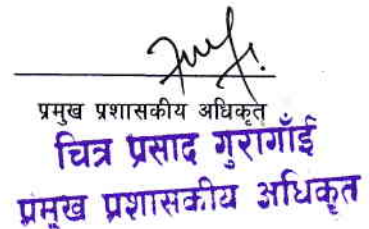 प्रमुख प्रशासकीय अधिकृत
चित्र प्रसाद गुरागाँई
प्रमुख प्रशासकीय अधिकृत